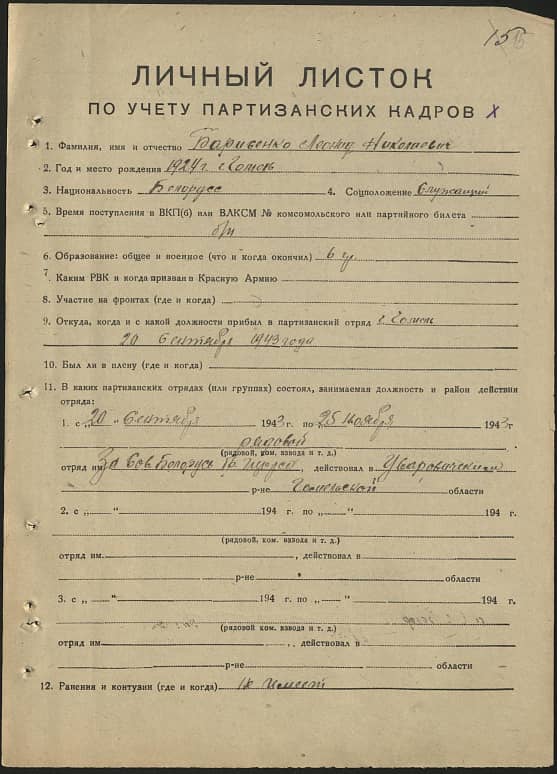 15
ЛИЧНЫЙ ЛИСТОК
ПО УЧЕТУ ПАРТИЗАНСКИХ КАДРОВ
1. Фамилия, имя и отчество Леонид Николаевич
2. Год и место рождения 1924 г. г. Гомель
3. Национальность Белорусс 4. Соцположение Служащий
5. Время поступления в ВКП(б) или ВЛКСМ № комсомольского или партийного билета
б/п
6. Образование: общее и военное (что и когда окончил) 6
7. Каким РВК и когда призван в Красную Армию
8. Участие на фронтах (где и когда)
9. Откуда, когда и с какой должности прибыл в партизанский отряд г. Гомель
20 Сентября 1943 года
10. Был ли в плену (где и когда)
11. В каких партизанских отрядах (или группах) состоял, занимаемая должность и район действия
отряда:
1. с „20 " Сентября 1943 г. по „25 Ноября 1943 г
рядовой
(рядовой, ком. взвода и т. д.)
отряд им За Сов. Белорусь, действовал в Уваровическом
р-не Гомельской области
2. с „ " 194 г. по „ " 194 г.
(рядовой, ком. взвода и т. д.)
отряд им. , действовал в
р-не области
3. с „ " 194 г. по „ " 194 г.
(рядовой ком. взвода и т. д.)
отряд им , действовал в
р-не области
12. Ранения и контузии (где и когда) Не имеет